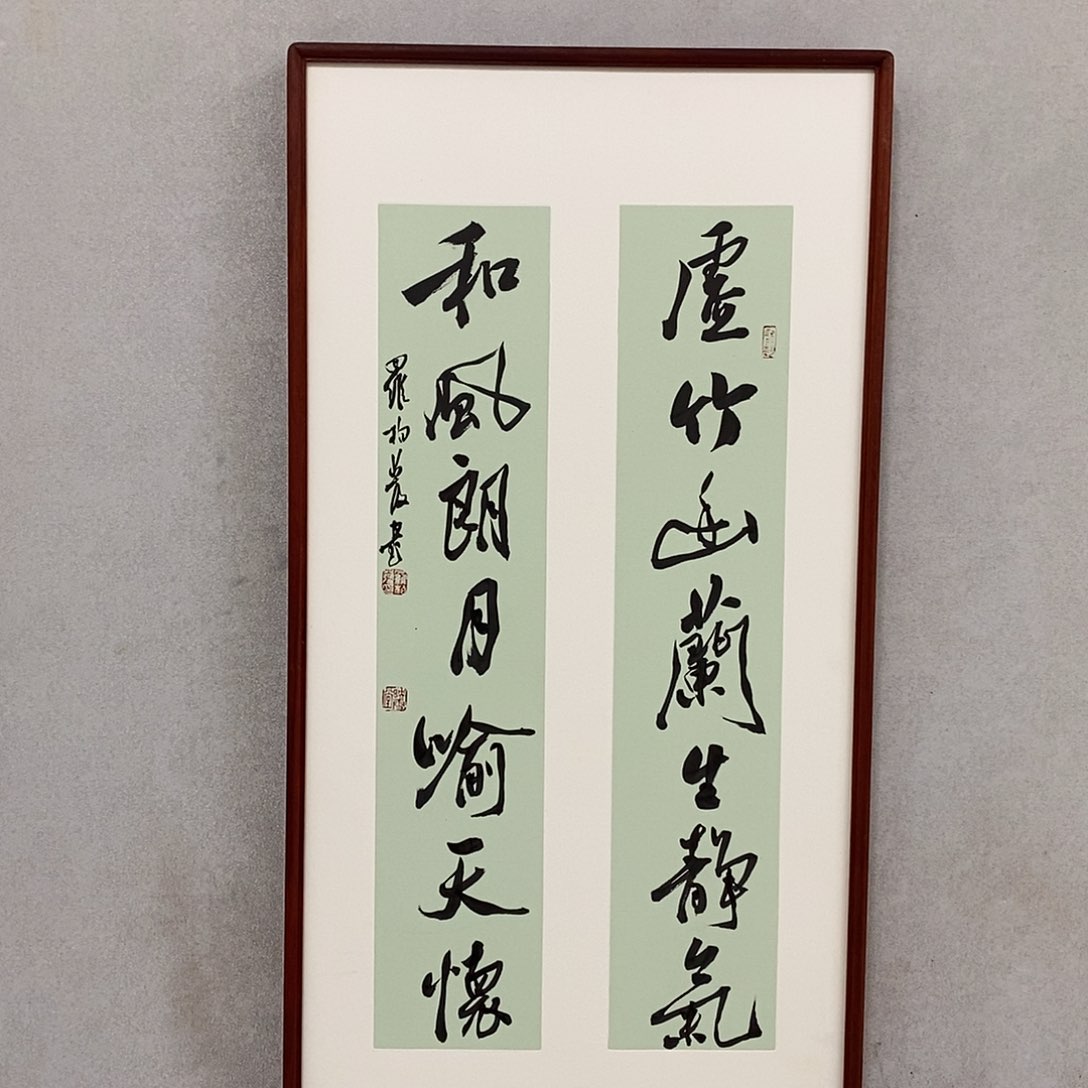 虛竹幽蘭生靜氣
和風朗月喻天懷
羅書